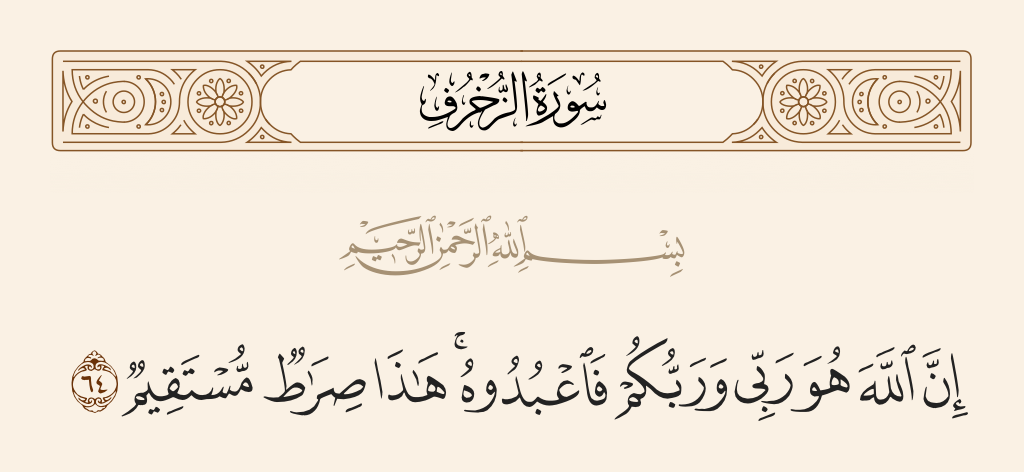 سُورَةُ الزُّخْرُفِ
بِسْمِ ٱللَّهِ ٱلرَّحْمَٰنِ ٱلرَّحِيمِ
إِنَّ ٱللَّهَ هُوَ رَبِّى وَرَبُّكُمْ فَٱعْبُدُوهُ ۚ هَٰذَا صِرَٰطٌ مُّسْتَقِيمٌ ٦٤